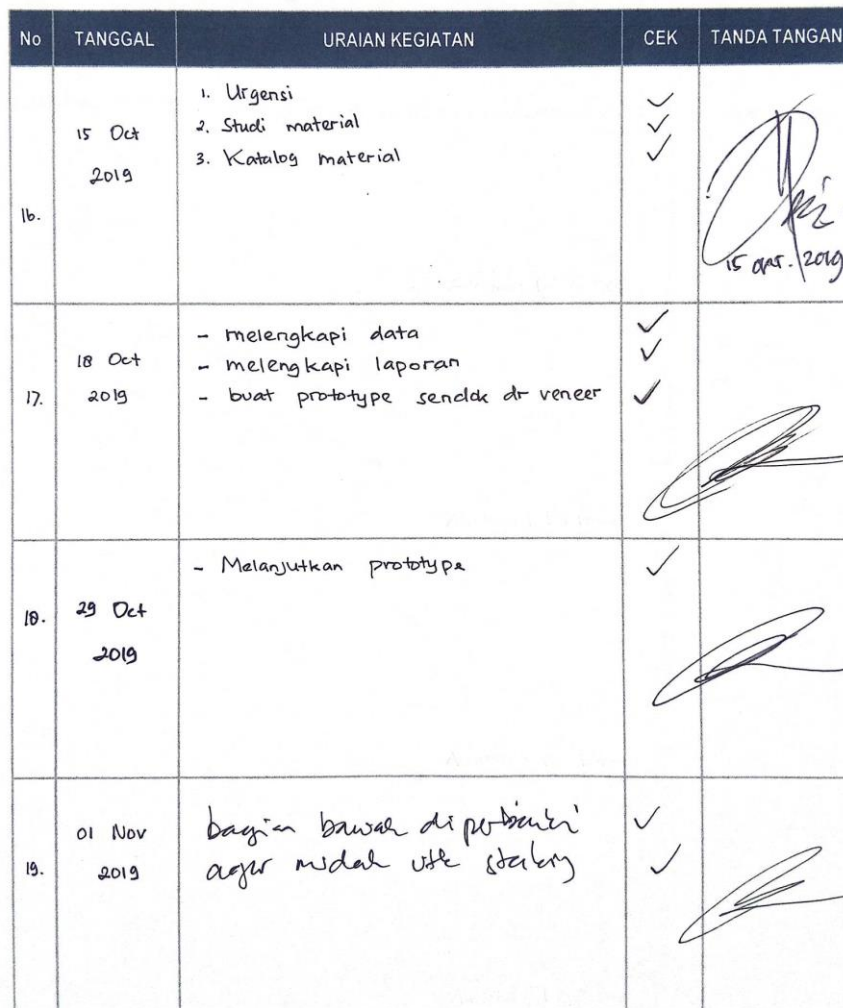 No TANGGAL URAIAN KEGIATAN CEK TANDA TANGAN
16.
15 Oct
2019
1. Urgensi
2. Studi material
3. Katalog material
15 2019
17.
18 Oct
2019
- melengkapi data
- melengkapi laporan
- buat prototype sendok dr veneer
18.
29 Oct
2019
- Melanjutkan prototype
19.
01 Nov
2019
bagian bawah diperbaiki
agar mudah utk